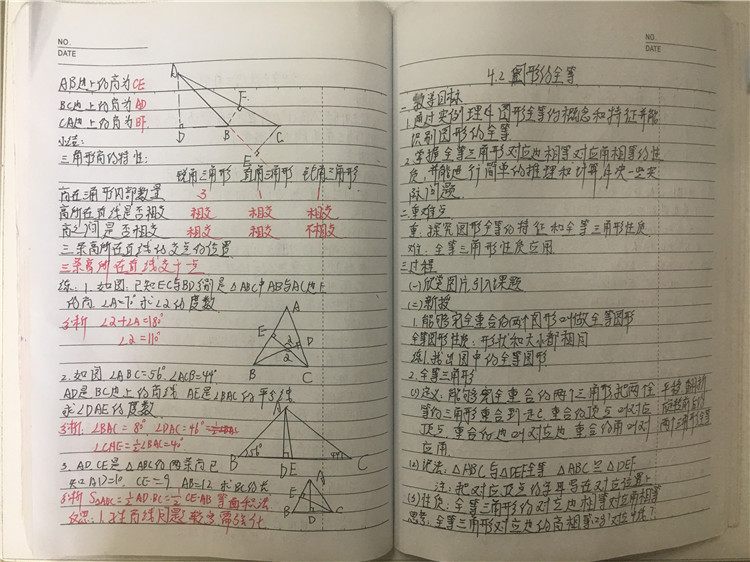 NO.
DATE
AB边上的高为CE
BC边上的高为AD
CA边上的高为BF
小结:
三角形高的特性:
锐角三角形 直角三角形 钝角三角形
高在三角形内部数量 3 1 1
高所在直线是否相交 相交 相交 相交
高之间是否相交 相交 相交 不相交
三条高所在直线的交点的位置
三条高所在直线交于一点
练:1.如图,已知EC与BD分别是△ABC中AB与AC边上
的高 ∠A=70° 求∠2的度数
分析 ∠2+∠A=180°
∠2=110°
2.如图 ∠ABC=56° ∠ACB=44°
AD是BC边上的高线 AE是∠BAC的平分线
求∠DAE的度数
分析. ∠BAC=80° ∠DAC=46°
∠CAE=½∠BAC=40°
3. AD.CE是△ABC的两条高已
知AD=10, CE=9, AB=12 求BC的长
分析 S△ABC=½AD·BC=½CE·AB 等面积法
反思:1.
A
F
D B C
E
A
E D
2
B C
A
56° 44°
B D E C
A
E
B D C
NO.
DATE
4.2 图形的全等
一.教学目标
1.通过实例理解图形全等的概念和特征并能
识别图形的全等
2.掌握全等三角形对应边相等对应角相等的性
质,并能进行简单的推理和计算解决一些实
际问题.
二.重难点
重.探究图形全等的特征和全等三角形性质
难.全等三角形性质应用
三.过程
(一)欣赏图片,引入课题
(二)新授
1.能够完全重合的两个图形叫做全等图形
全等图形性质:形状和大小都相同
练1.找出图中的全等图形
2.全等三角形
(1)定义:能够完全重合的两个三角形 把两个全
等的三角形重合到一起,重合的顶点叫对应
顶点 重合的边叫对应边 重合的角叫对
应角
平移.翻折.
旋转前后的
两个三角形全等
(2)记法:△ABC与△DEF全等 △ABC≌△DEF
注:把对应顶点的字母写在对应位置上
(3)性质:全等三角形的对应边相等对应角相等
思考:全等三角形对应边的高相等吗?